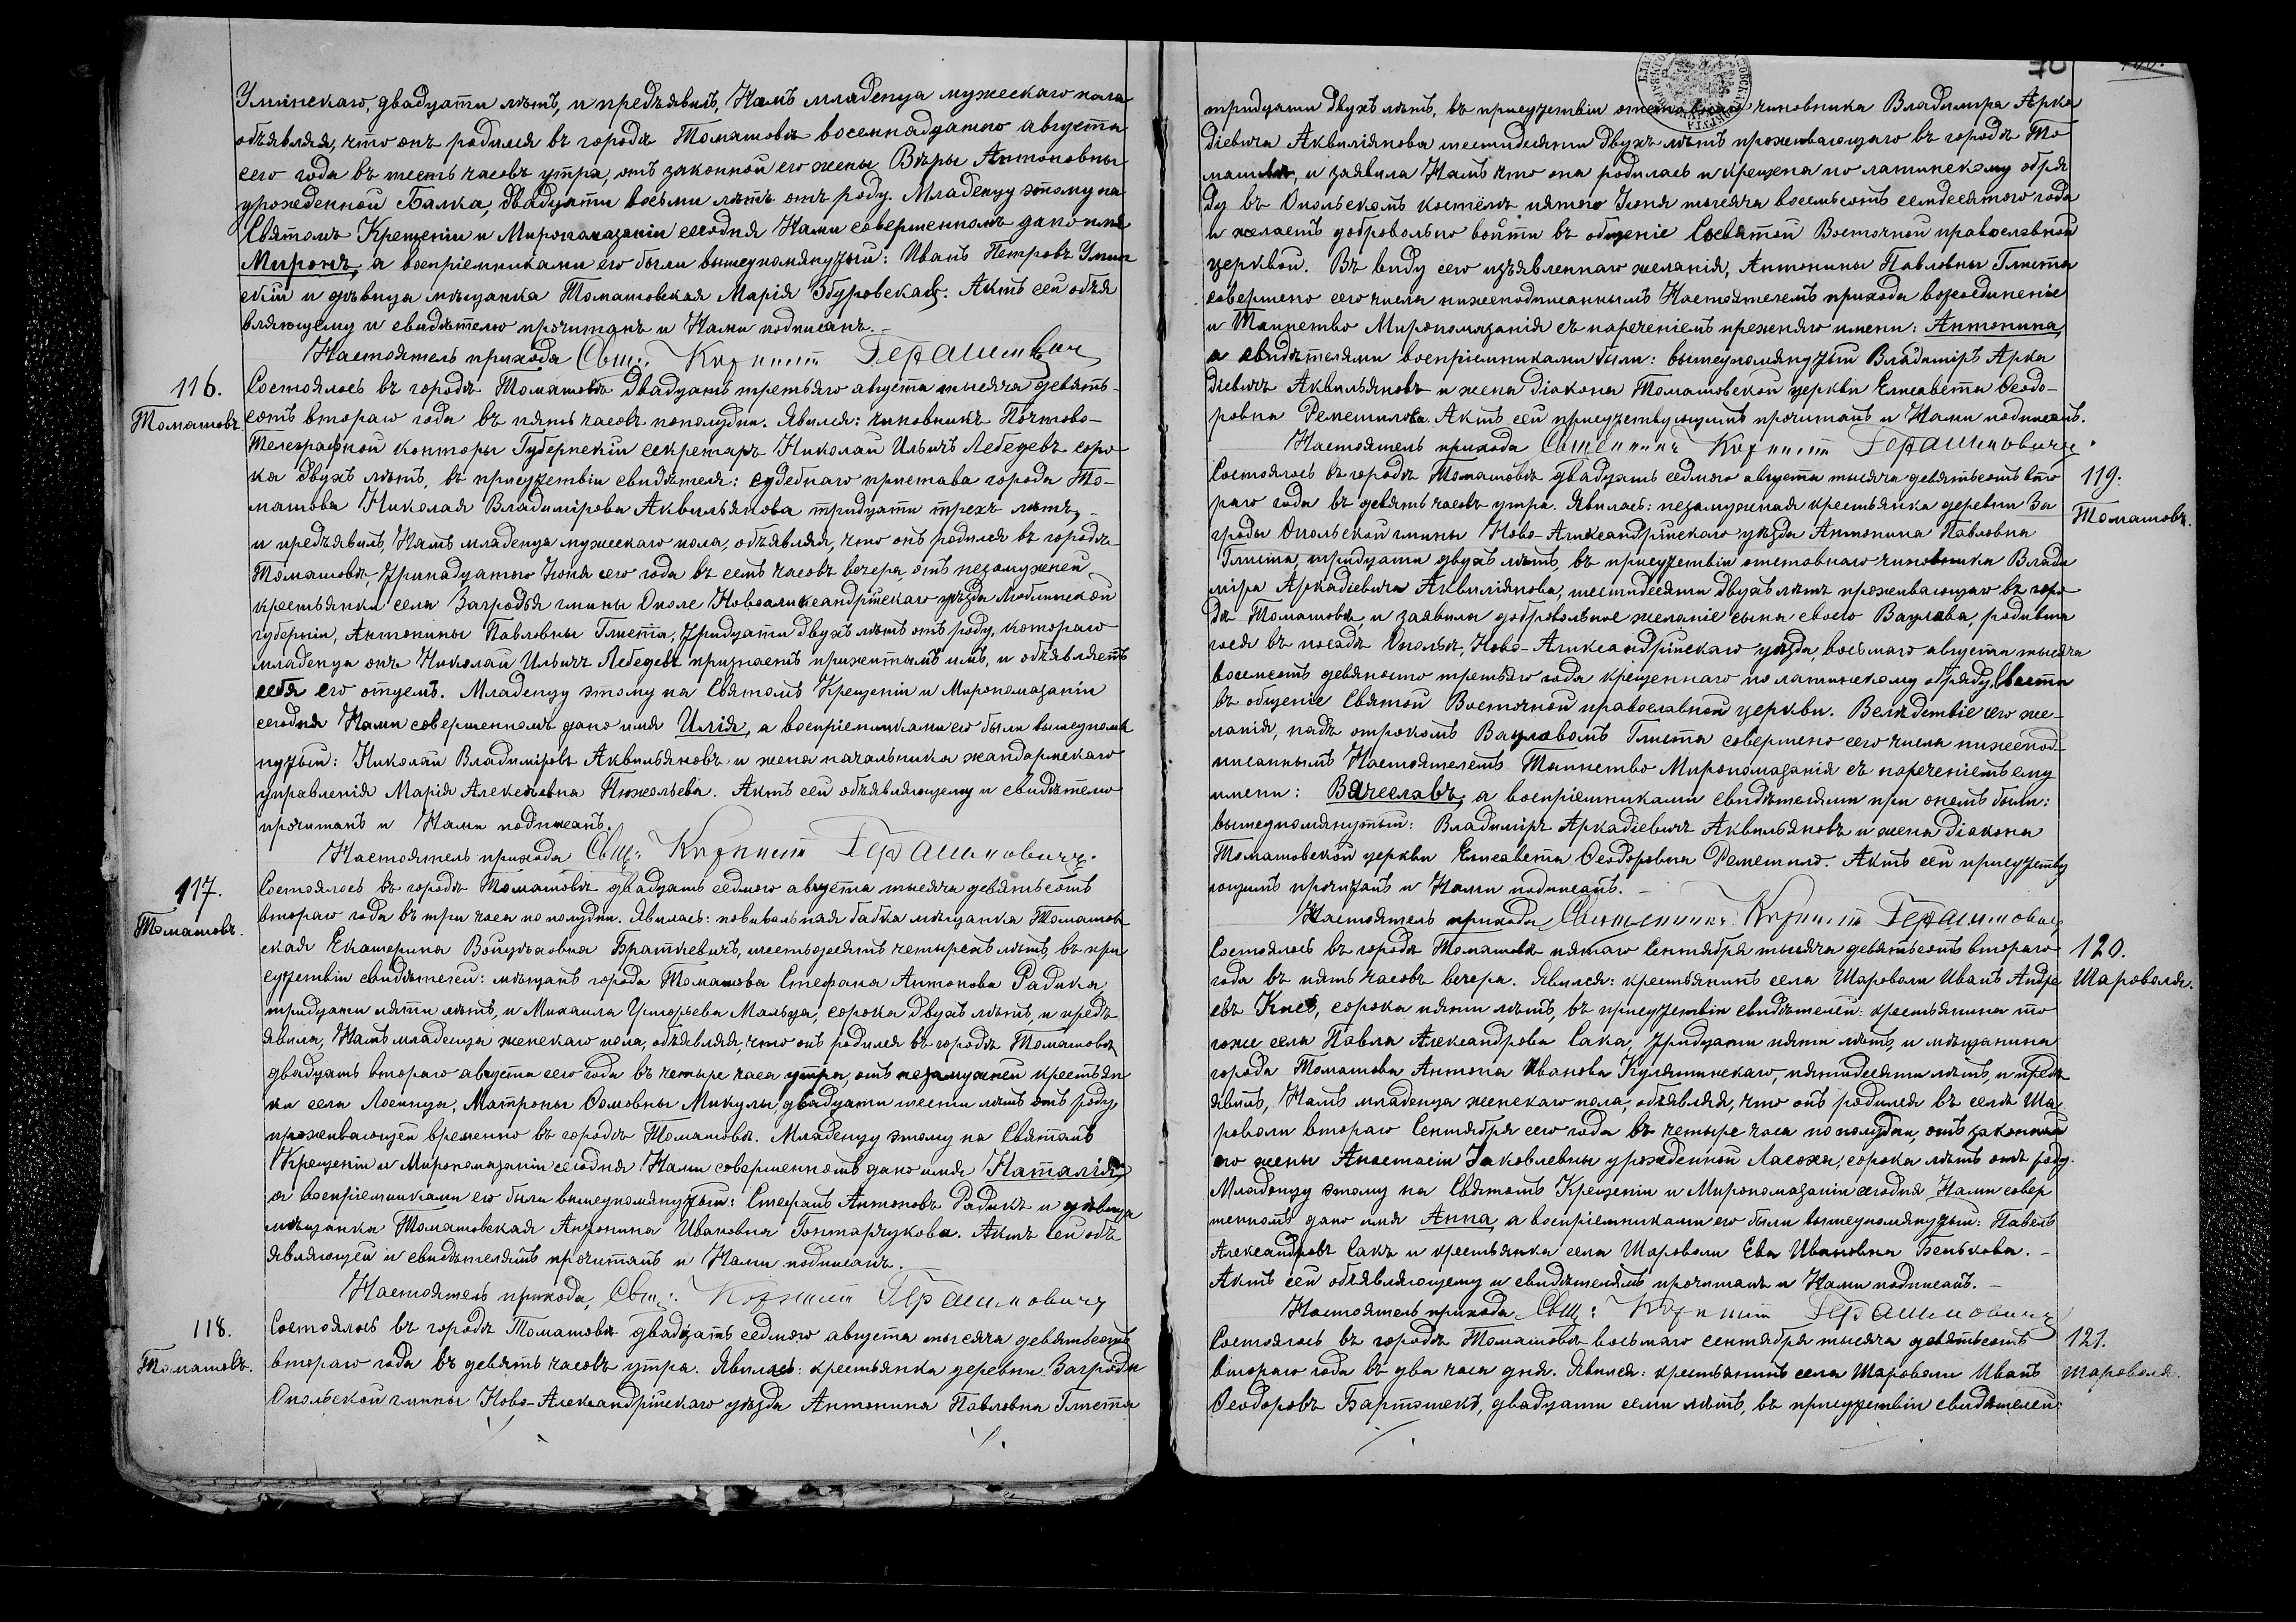 Уминскаго, двадцати лѣтъ, и предъявилъ Намъ младенца мужескаго пола
объявляя, что онъ родился въ городѣ Томашовѣ восемнадцатого августа
сего года въ шесть часовъ утра, отъ законной его жены Вѣры Антоновны
урожденной Балка, двадцати восьми лѣтъ отъ роду. Младенцу этому на
Святомъ Крещеніи и Миропомазаніи сегодня Нами совершенномъ дано имя
Миронъ, а воспріемниками его были вышеупомянутый: Иванъ Петровъ Умин
скій и дѣвица мѣщанка Томашовская Марія Збуровская. Актъ сей объя
вляющему и свидѣтелю прочитанъ и Нами подписанъ.
Настоятель прихода Свящ:
116.
Томашовъ
Состоялось въ городѣ Томашовѣ двадцать третьяго августа тысяча девять-
сотъ втораго года въ пять часовъ пополудни. Явился: чиновникъ Почтово-
Телеграфной конторы Губернскій секретарь Николай Ильичъ Лебедевъ соро
ка двухъ лѣтъ, въ присутствіи свидѣтеля: судебнаго пристава города То-
машова Николая Владимірова Аквильянова тридцати трехъ лѣтъ,
и предъявилъ Намъ младенца мужескаго пола, объявляя, что онъ родился въ городѣ
Томашовѣ, тринадцатого Іюня сего года въ семь часовъ вечера, отъ незамужней
крестьянки села Загродья гмины Ополе Новоалександрійскаго уѣзда Люблинской
губерніи, Антонины Павловны Глиста, тридцати двухъ лѣтъ отъ роду, котораго
младенца онъ Николай Ильичъ Лебедевъ признаетъ прижитымъ имъ, и объявляетъ
себя его отцемъ. Младенцу этому на Святомъ Крещеніи и Миропомазаніи
сегодня Нами совершенномъ дано имя Илія, а воспріемниками его были вышеупомя
нутый: Николай Владиміровъ Аквильяновъ и жена начальника жандармскаго
управленія Марія Алексѣевна. Актъ сей объявляющему и свидѣтелю
прочитанъ и Нами подписанъ.
Настоятель прихода Свящ: Герасимовичъ
117.
Томашовъ.
Состоялось въ городѣ Томашовѣ двадцать седмого августа тысяча девятьсотъ
втораго года въ три часа пополудни. Явилась: повивальная бабка мѣщанка Томашов
ская Екатерина Войцѣховна Браткевичъ, шестьдесятъ четырехъ лѣтъ, въ при
сутствіи свидѣтелей: мѣщанъ города Томашова Стефана Антонова Радика,
тридцати пяти лѣтъ, и Михаила Григорьева Мальца, сорока двухъ лѣтъ, и предъ
явила, Намъ младенца женскаго пола, объявляя, что онъ родился въ городѣ Томашовѣ
двадцать втораго августа сего года въ четыре часа утра, отъ незамужней крестьян
ки села Лосинца, Матроны Ѳомовны Микулы, двадцати шести лѣтъ отъ роду
проживающей временно въ городѣ Томашовѣ. Младенцу этому на Святомъ
Крещеніи и Миропомазаніи сегодня Нами совершенномъ дано имя Наталія,
а воспріемниками его были вышеупомянутый: Стефанъ Антоновъ Радикъ и дѣвица
мѣщанка Томашовская Антонина Ивановна Гонтарчукова. Актъ сей объ
являющей и свидѣтелямъ прочитанъ и Нами подписанъ.
Настоятель прихода, Свящ: Герасимовичъ
118.
Томашовъ.
Состоялось въ городѣ Томашовѣ двадцать седмого августа тысяча девятьсотъ
втораго года въ девять часовъ утра. Явилась: крестьянка деревни Загроды
Опольской гмины Ново-Александрійскаго уѣзда Антонина Павловна Глиста
70
тридцати двухъ лѣтъ, въ присутствіи отставнаго чиновника Владиміра Арка
діевича Аквилянова шестидесяти двухъ лѣтъ проживающаго въ городѣ То
машовѣ, и заявила Намъ что она родилась и крещена по латинскому обря
ду въ Опольскомъ костёлѣ пятого Іюня тысяча восемьсотъ семдесятого года
и желаетъ добровольно войти въ общеніе Со святой Восточной православной
церквой. Въ виду сего изъявленнаго желанія, Антонины Павловны Глиста
совершено сего числа нижеподписаннымъ Настоятелемъ прихода возсоединеніе
и Таинство Миропомазанія съ нареченіемъ прежняго имени: Антонина,
а свидѣтелями воспріемниками были: вышеупомянутый Владиміръ Арка
діевичъ Аквильяновъ и жена діакона Томашовской церкви Елисавета Ѳеодо-
ровна Ременило. Актъ сей присутствующимъ прочитанъ и Нами подписанъ.
Настоятель прихода Священникъ Герасимовичъ
119.
Томашовъ.
Состоялось въ городѣ Томашовѣ двадцать седмого августа тысяча девятьсотъ вто
раго года въ девять часовъ утра. Явилась: незамужная крестьянка деревни За
гроды Опольской гмины Ново-Александрійскаго уѣзда Антонина Павловна
Глиста, тридцати двухъ лѣтъ, въ присутствіи отставнаго чиновника Влади
міра Аркадіевича Аквилянова, шестидесяти двухъ лѣтъ проживающаго въ горо
дѣ Томашовѣ, и заявили добровольное желаніе сына своего Вацлава, родивша
гося въ посадѣ Опольѣ, Ново-Александрійскаго уѣзда, восьмаго августа тысяча
восемсотъ девяносто третьяго года крещеннаго по латинскому обряду, ввести
въ общеніе Святой Восточной православной церкви. Велѣдствіе сего же-
ланія, надъ отрокомъ Вацлавомъ Глиста совершено сего числа нижепод-
писаннымъ Настоятелемъ Таинство Миропомазанія съ нареченіемъ ему
имени: Вячеславъ, а воспріемниками свидѣтелями при ономъ были:
вышеупомянутый: Владиміръ Аркадіевичъ Аквильяновъ и жена діакона
Томашовской церкви Елисавета Ѳеодоровна Ременило. Актъ сей присутству
ющимъ прочитанъ и Нами подписанъ.
Настоятель прихода Священникъ
120.
Шароволя.
Состоялось въ городѣ Томашовѣ пятаго Сентября тысяча девятьсотъ втораго
года въ пять часовъ вечера. Явился: крестьянинъ села Шароволи Иванъ Андре
евъ, сорока пяти лѣтъ, въ присутствіи свидѣтелей: крестьянина то
гоже села Павла Александрова Сака, тридцати пяти лѣтъ, и мѣщанина
города Томашова Антона Иванова, пятидесяти лѣтъ, и предъ
явилъ, Намъ младенца женскаго пола, объявляя, что онъ родился въ селѣ Ша
роволи втораго Сентября сего года въ четыре часа пополудни, отъ законной
его жены Анастасіи Іаковлевны урожденной Ласоха, сорока лѣтъ отъ роду.
Младенцу этому на Святомъ Крещеніи и Миропомазаніи сегодня Нами совер
шенномъ дано имя Анна, а воспріемниками его были вышеупомянутый: Павелъ
Александровъ Сакъ и крестьянка села Шароволи Ева Ивановна Бенькова.
Актъ сей объявляющему и свидѣтелямъ прочитанъ и Нами подписанъ.
Настоятель прихода Свящ: Герасимовичъ
121.
Шароволя.
Состоялось въ городѣ Томашовѣ восьмаго сентября тысяча девятьсотъ
втораго года въ два часа дня. Явился: крестьянинъ села Шароволи Иванъ
Ѳеодоровъ, двадцати семи лѣтъ, въ присутствіи свидѣтелей: